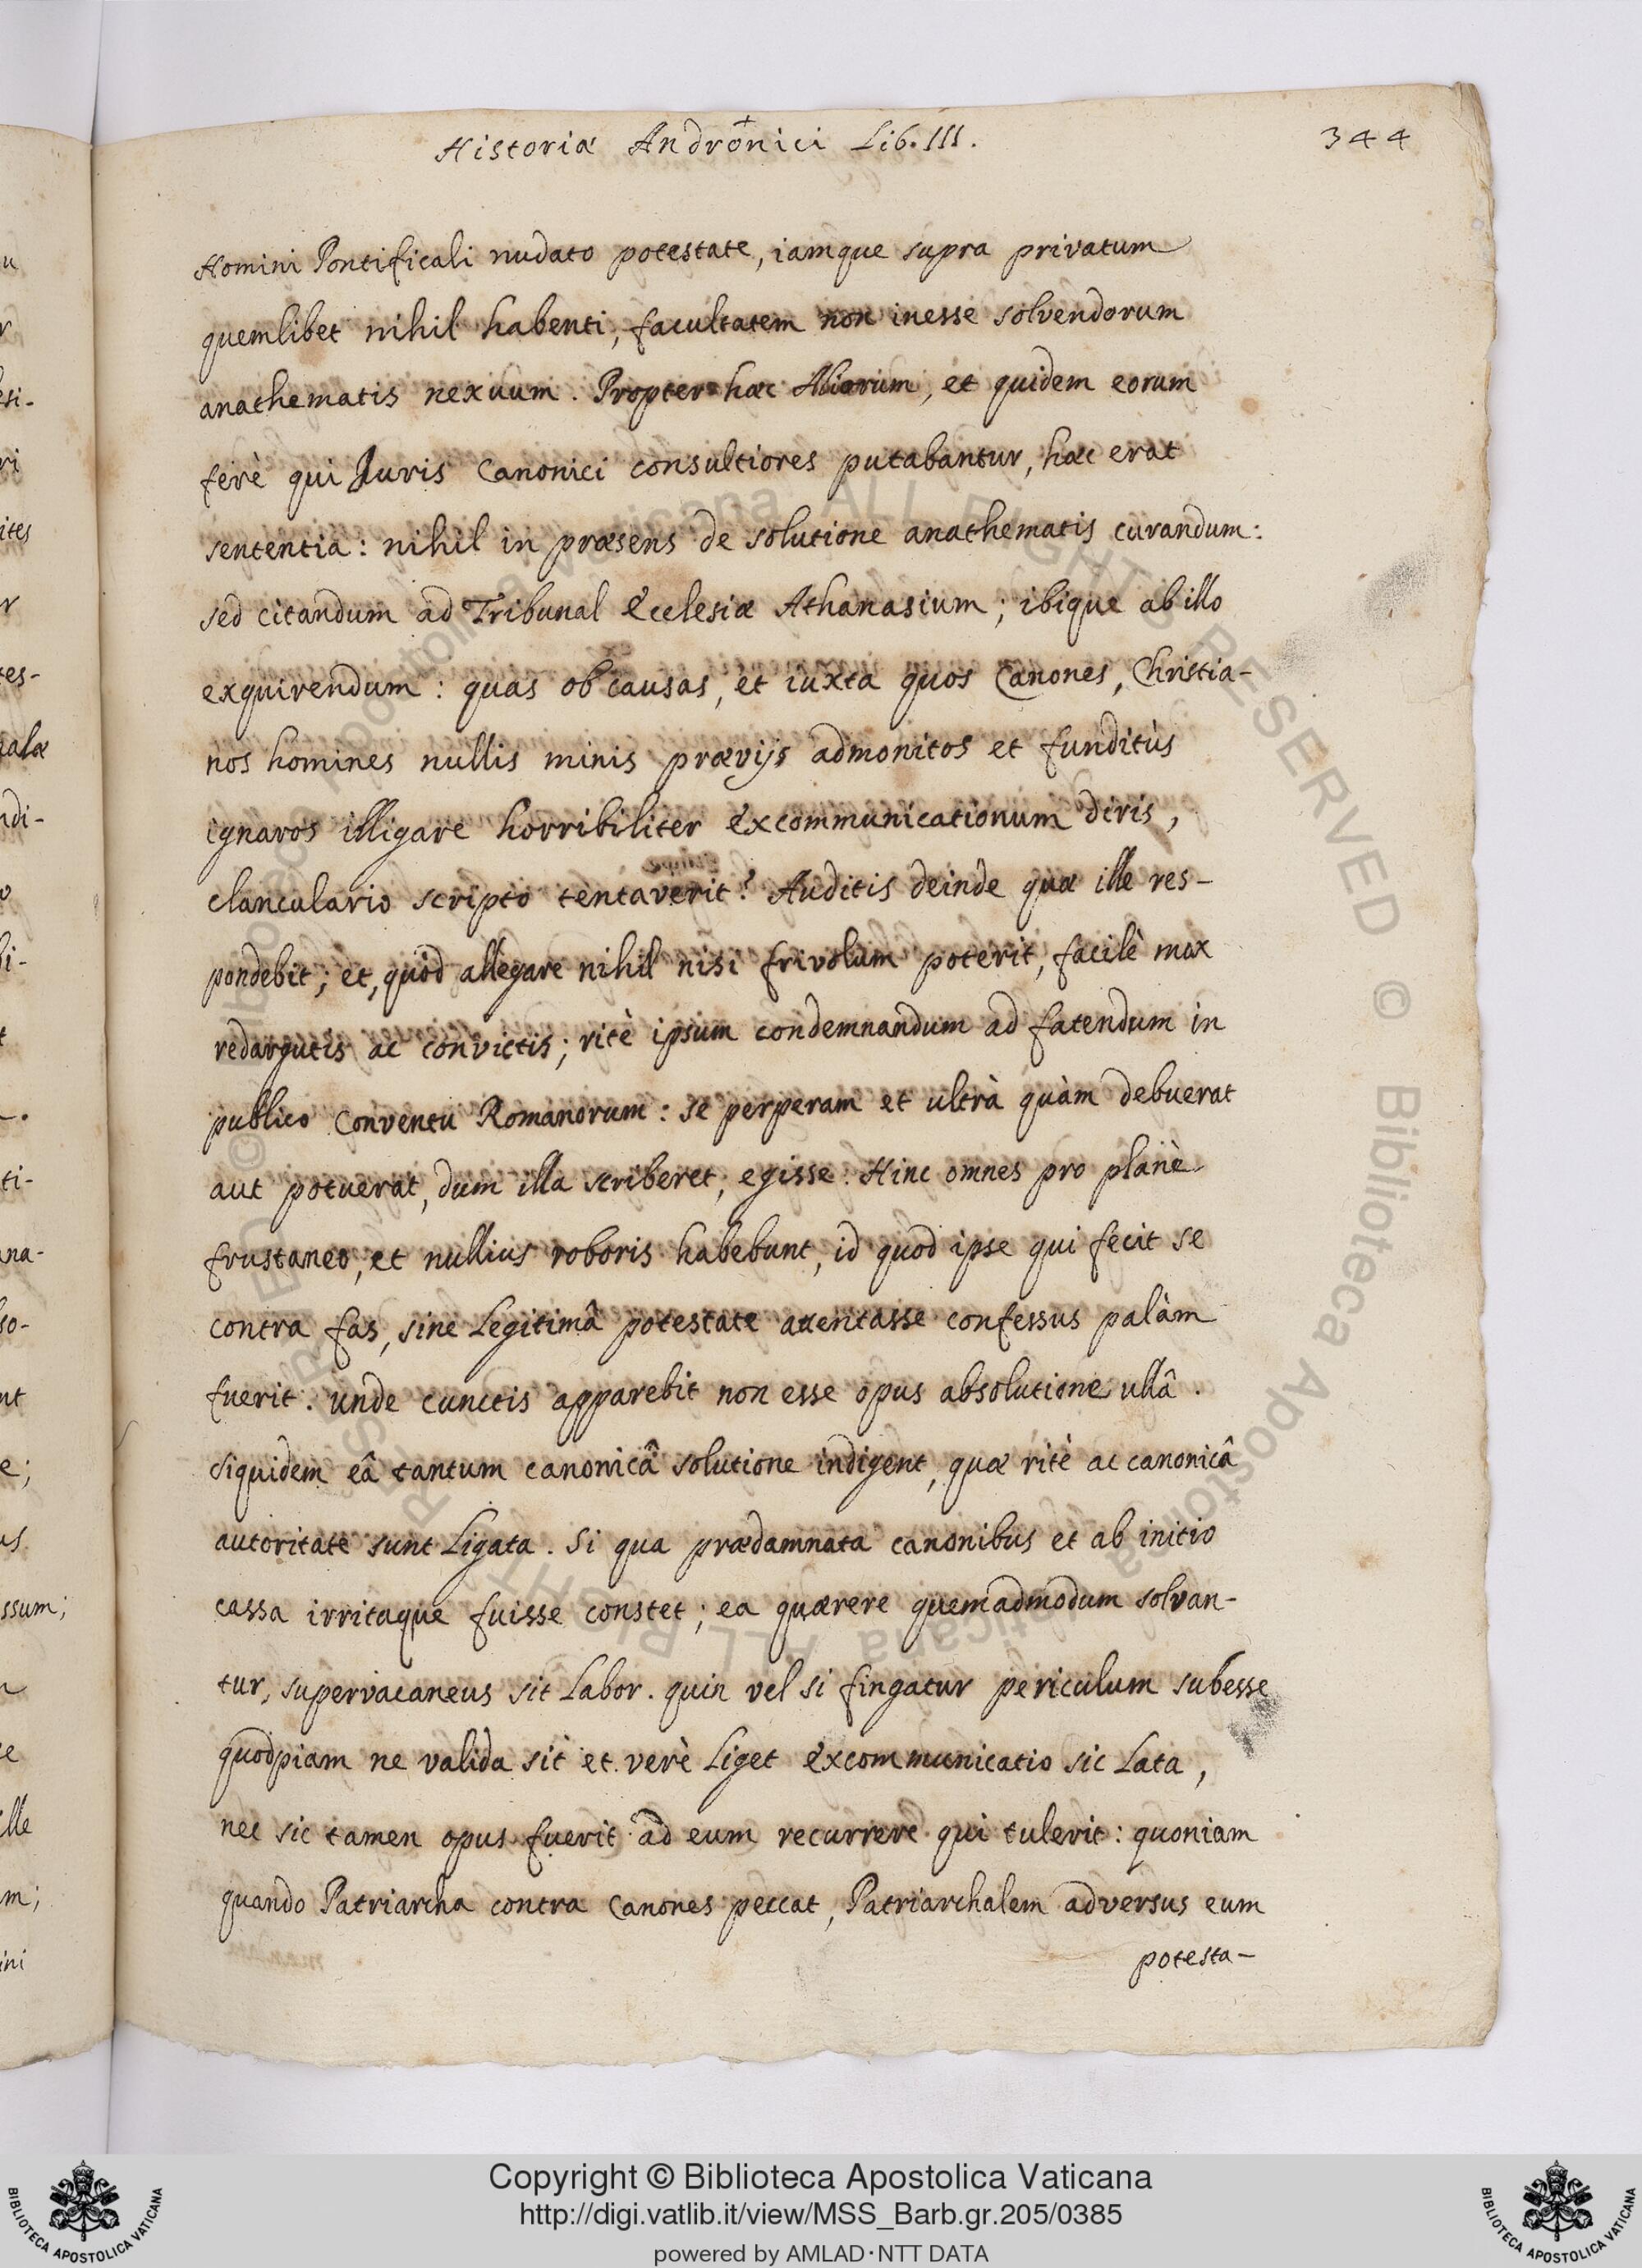 Historiæ Andronici Lib. III. 344
Homini Pontificali nudato potestate, iamque supra privatum
quemlibet nihil habenti, facultatem non inesse solvendorum
anathematis nexuum. Propter hæc Aliorum, et quidem eorum
ferè qui Iuris Canonici consultiores putabantur, hæc erat
sententia: nihil in præsens de solutione anathematis curandum:
sed citandum ad Tribunal Ecclesiæ Athanasium; ibique ab illo
exquirendum: quas ob causas, et iuxta quos Canones, Christia-
nos homines nullis minis prævijs admonitos et funditùs
ignaros illigare horribiliter excommunicationum diris,
clanculario scripto tentaverit? Auditis deinde quæ ille res-
pondebit; et, quòd allegare nihil nisi frivolum poterit, facilè mox
redargutis ac convictis; ritè ipsum condemnandum ad fatendum in
publico Conventu Romanorum: se perperam et ultrà quàm debuerat
aut potuerat, dum illa scriberet, egisse. Hinc omnes pro planè
frustaneo, et nullius roboris habebunt, id quod ipse qui fecit se
contra fas, sine Legitimâ potestate attentasse confessus palàm
fuerit. unde cunctis apparebit non esse opus absolutione ullâ.
siquidem eâ tantum canonicâ solutione indigent, quæ ritè ac canonicâ
autoritate sunt Ligata. Si qua prædamnata canonibus et ab initio
cassa irritaque fuisse constet; ea quærere quemadmodum solvan-
tur, supervacaneus sit Labor. quin vel si fingatur periculum subesse
quodpiam ne valida sit et verè Liget excommunicatio sic Lata,
nec sic tamen opus fuerit ad eum recurrere qui tulerit: quoniam
quando Patriarcha contra Canones peccat, Patriarchalem adversus eum
potesta-
Copyright © Biblioteca Apostolica Vaticana
http://digi.vatlib.it/view/MSS_Barb.gr.205/0385
powered by AMLAD·NTT DATA
BIBLIOTECA APOSTOLICA VATICANA
BIBLIOTECA APOSTOLICA VATICANA